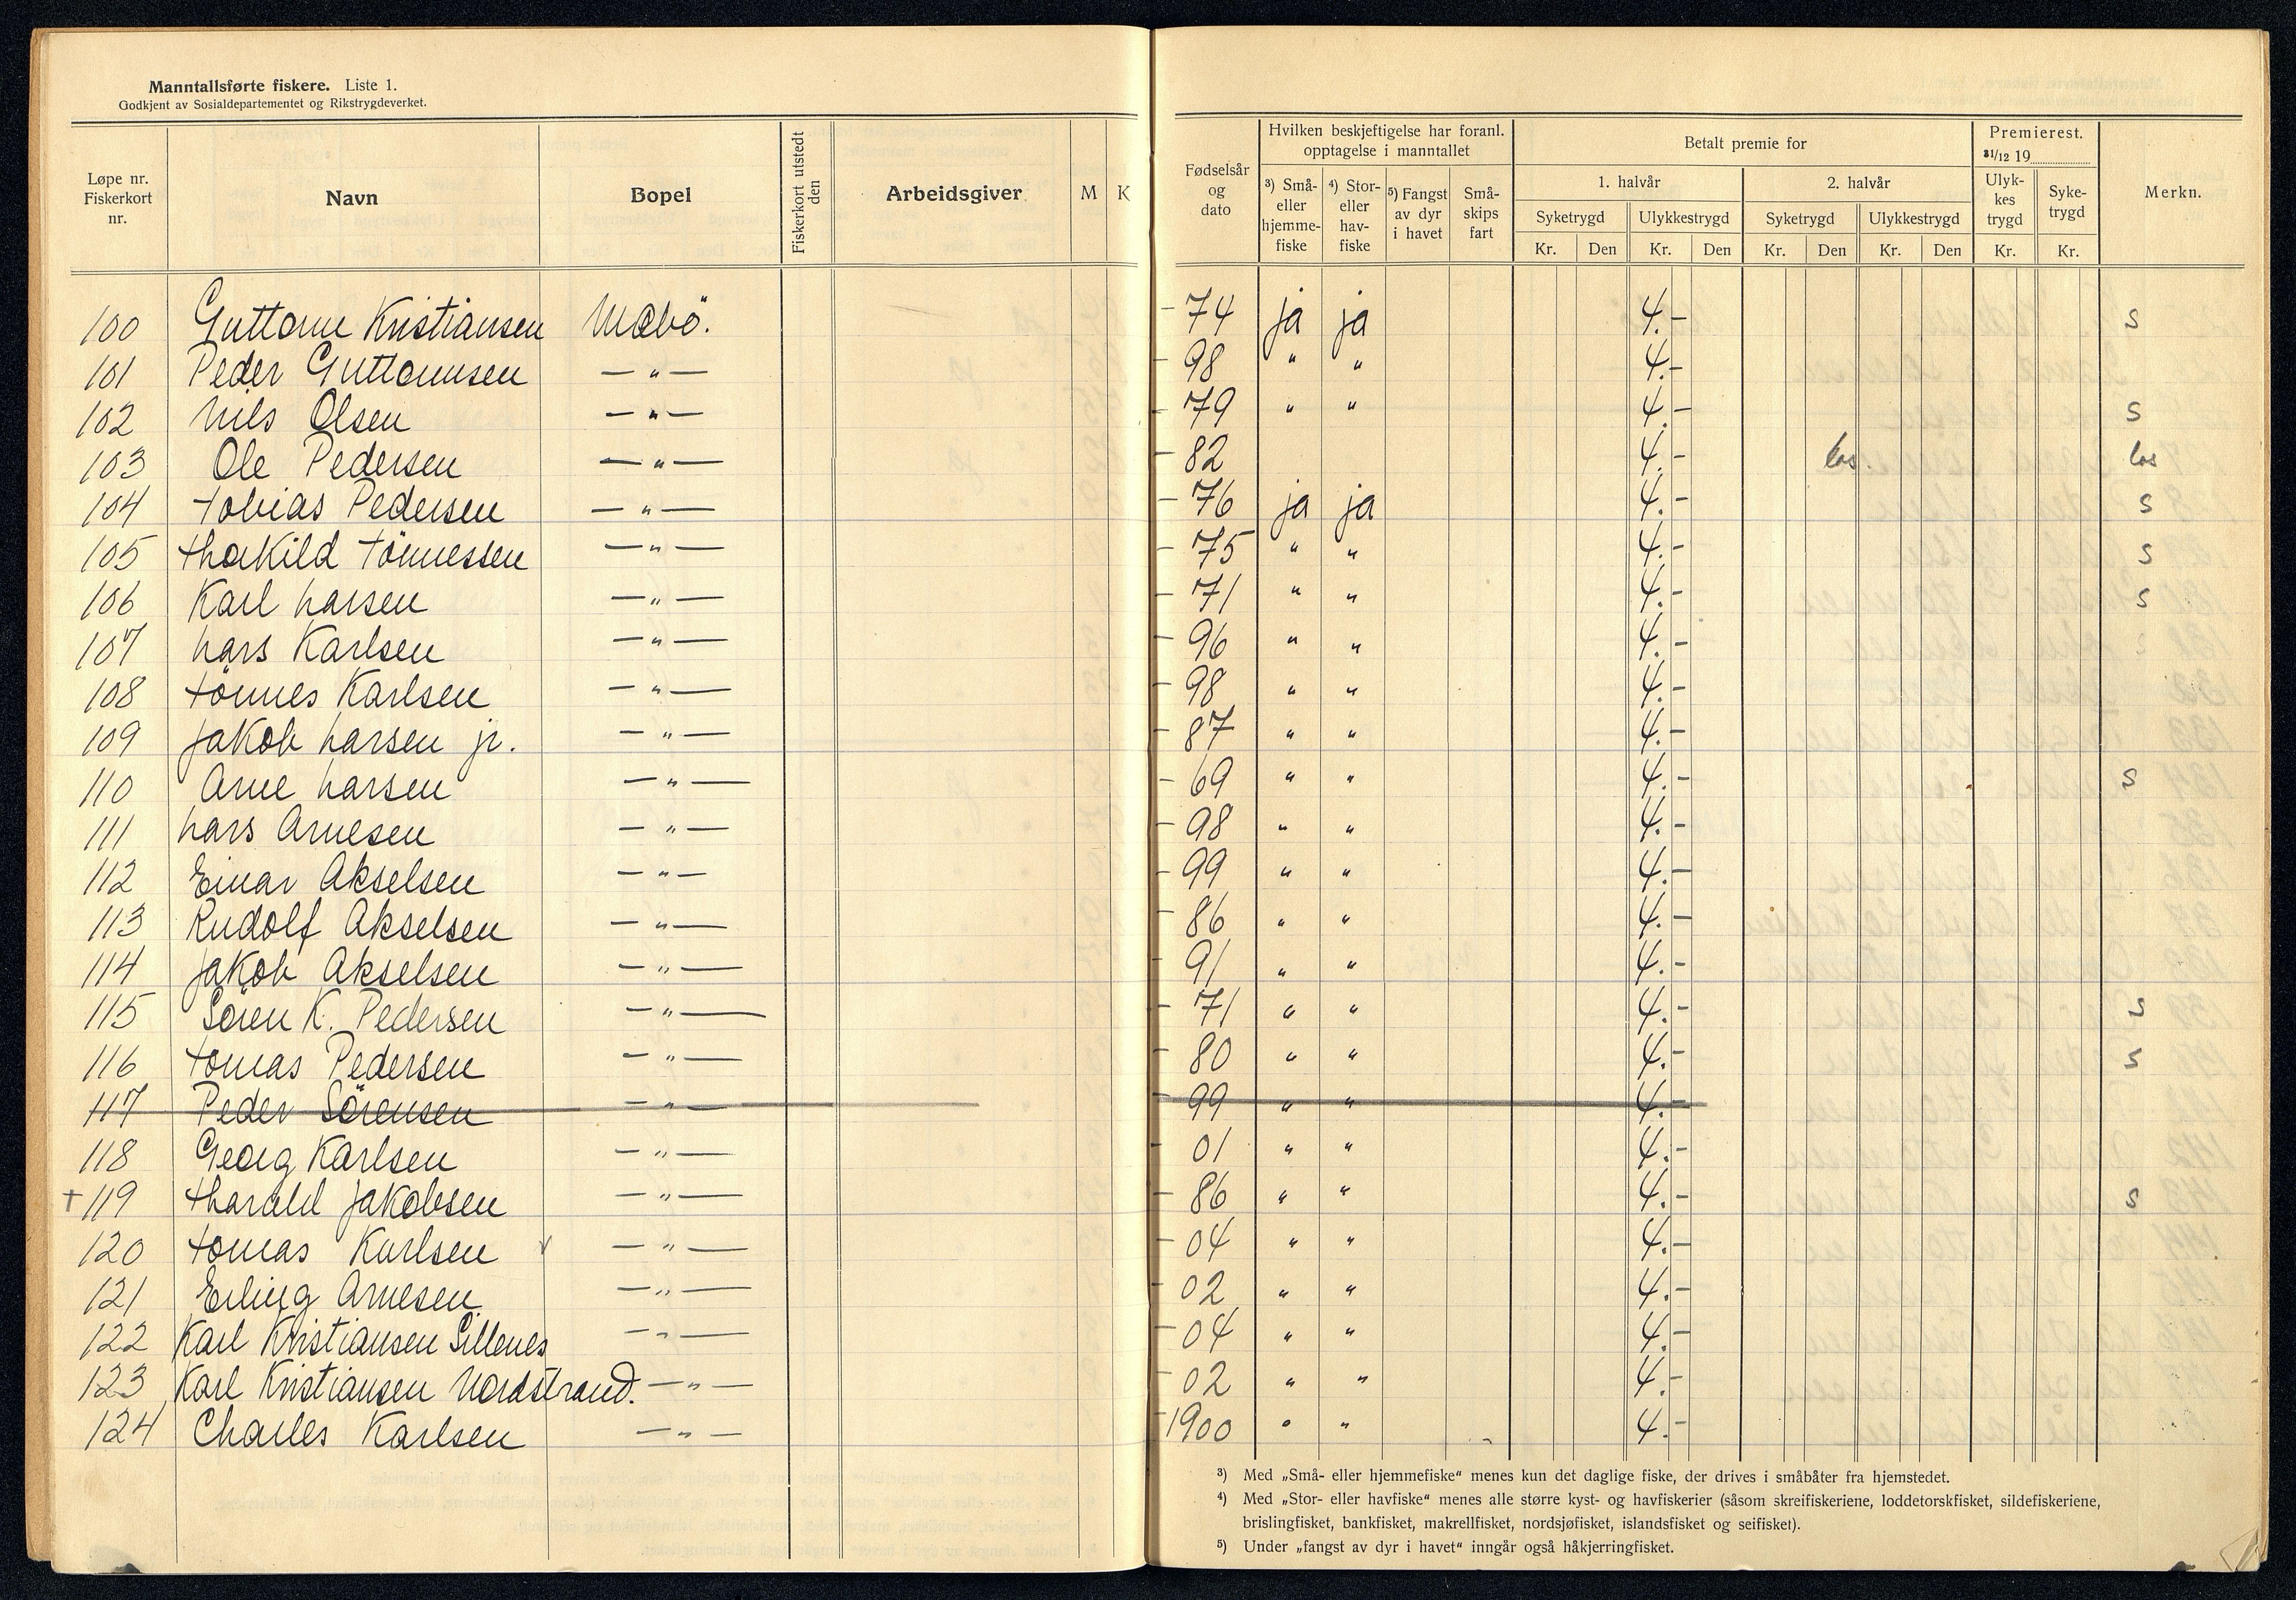 Manntallsførte fiskere. Liste 1.
Godkjent av Sosialdepartementet og Rikstrygdeverket.
Løpe nr. Fiskerkort nr. Navn Bopel Fiskerkort utstedt den Arbeidsgiver M K
Fødselsår og dato Hvilken beskjeftigelse har foranl. opptagelse i manntallet Betalt premie for Premierest. 31/12 19 Merkn.
³) Små- eller hjemme- fiske ⁴) Stor- eller hav- fiske ⁵) Fangst av dyr i havet Små- skips fart 1. halvår 2. halvår Ulyk- kes trygd Syke- trygd
Syketrygd Ulykkestrygd Syketrygd Ulykkestrygd
Kr. Den Kr. Den Kr. Den Kr. Den Kr. Kr.
100 Guttorm Kristiansen Mæbö. -74 ja ja 4.- s
101 Peder Guttormsen -"- -98 " " 4.-
102 Nils Olsen -"- -79 " " 4.- s
103 Ole Pedersen -"- -82 4.- los. los
104 Tobias Pedersen -"- -76 ja ja 4.- s
105 Thorkild Tönnessen -"- -75 " " 4.- s
106 Karl Larsen -"- -71 " " 4.- s
107 Lars Karlsen -"- -96 " " 4.-
108 Tönnes Karlsen -"- -98 " " 4.-
109 Jakob Larsen jr. -"- -87 " " 4.-
110 Arne Larsen -"- -69 " " 4.- s
111 Lars Arnesen -"- -98 " " 4.-
112 Einar Akselsen -"- -99 " " 4.-
113 Rudolf Akselsen -"- -86 " " 4.-
114 Jakob Akselsen -"- -91 " " 4.-
115 Sören K. Pedersen -"- -71 " " 4.- s
116 Tomas Pedersen -"- -80 " " 4.- s
117 Peder Sörensen -"- -99 " " 4.-
118 Georg Karlsen -"- -01 " " 4.-
+119 Harald Jakobsen -"- -86 " " 4.- s
120 Tomas Karlsen -"- -04 " " 4.-
121 Erling Arnesen -"- -02 " " 4.-
122 Karl Kristiansen Sillenes -"- -04 " " 4.-
123 Karl Kristiansen Nordstrand. -"- -02 " " 4.-
124 Charles Karlsen -"- -1900 " " 4.-
³) Med „Små- eller hjemmefiske“ menes kun det daglige fiske, der drives i småbåter fra hjemstedet.
⁴) Med „Stor- eller havfiske“ menes alle større kyst- og havfiskerier (såsom skreifiskeriene, loddetorskfisket, sildefiskeriene,
brislingfisket, bankfisket, makrellfisket, nordsjøfisket, islandsfisket og seifisket).
⁵) Under „fangst av dyr i havet“ inngår også håkjerringfisket.